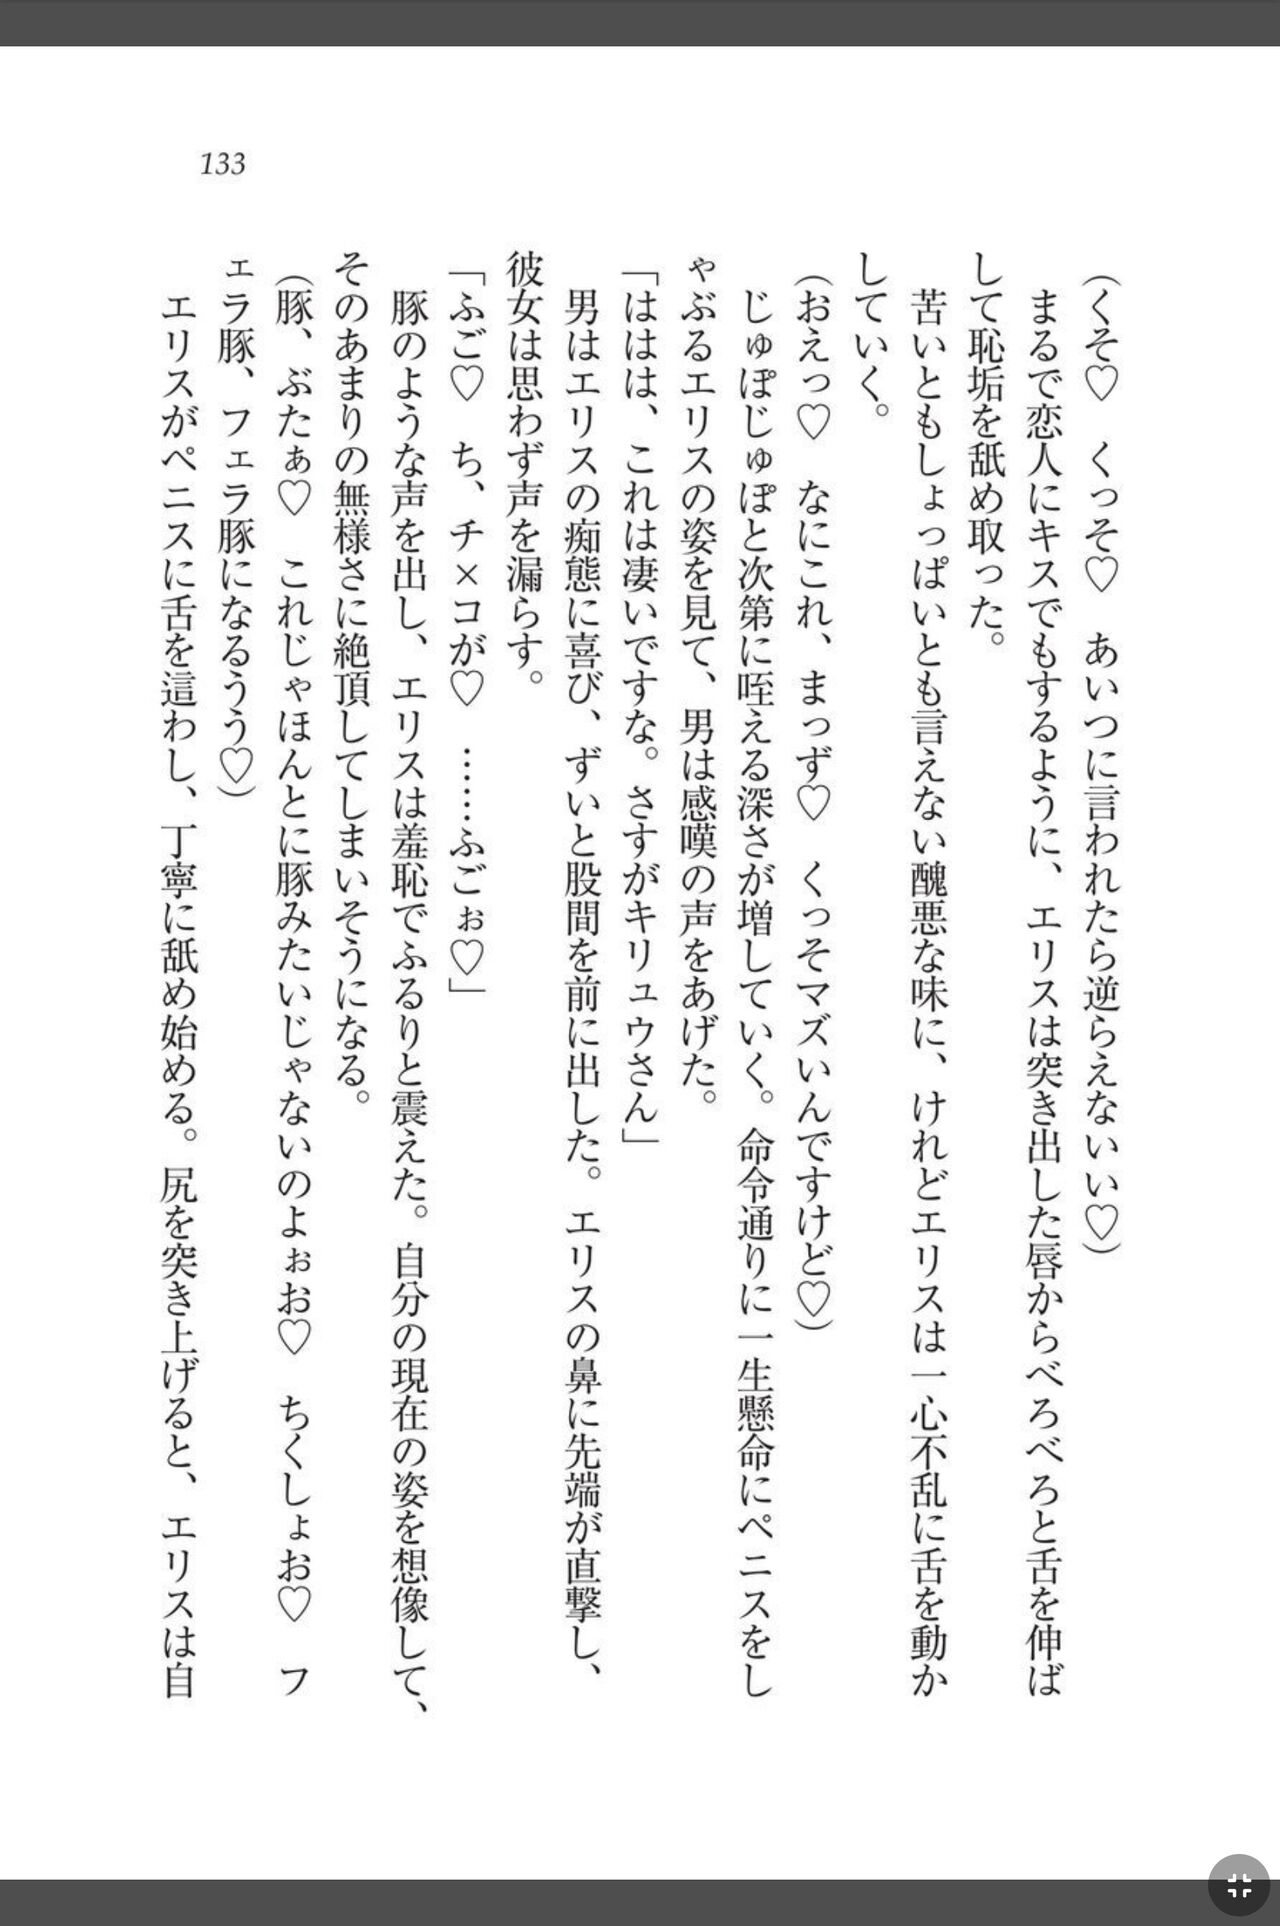 133
(くそ♡　くっそ♡　あいつに言われたら逆らえないい♡)
　まるで恋人にキスでもするように、エリスは突き出した唇からべろべろと舌を伸ば
して恥垢を舐め取った。
　苦いともしょっぱいとも言えない醜悪な味に、けれどエリスは一心不乱に舌を動か
していく。
(おえっ♡　なにこれ、まっず♡　くっそマズいんですけど♡)
　じゅぽじゅぽと次第に咥える深さが増していく。命令通りに一生懸命にペニスをし
ゃぶるエリスの姿を見て、男は感嘆の声をあげた。
「ははは、これは凄いですな。さすがキリュウさん」
　男はエリスの痴態に喜び、ずいと股間を前に出した。エリスの鼻に先端が直撃し、
彼女は思わず声を漏らす。
「ふご♡　ち、チ×コが♡　……ふごぉ♡」
　豚のような声を出し、エリスは羞恥でふるりと震えた。自分の現在の姿を想像して、
そのあまりの無様さに絶頂してしまいそうになる。
(豚、ぶたぁ♡　これじゃほんとに豚みたいじゃないのよぉお♡　ちくしょお♡　フ
ェラ豚、フェラ豚になるうう♡)
　エリスがペニスに舌を這わし、丁寧に舐め始める。尻を突き上げると、エリスは自